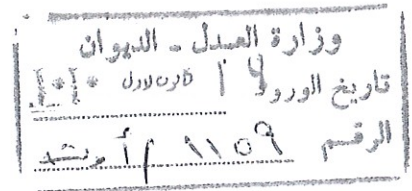 وزارة العدل - الديوان
تاريخ الورود ١٩ كانون الاول
الرقم ١١٥٩ / أ